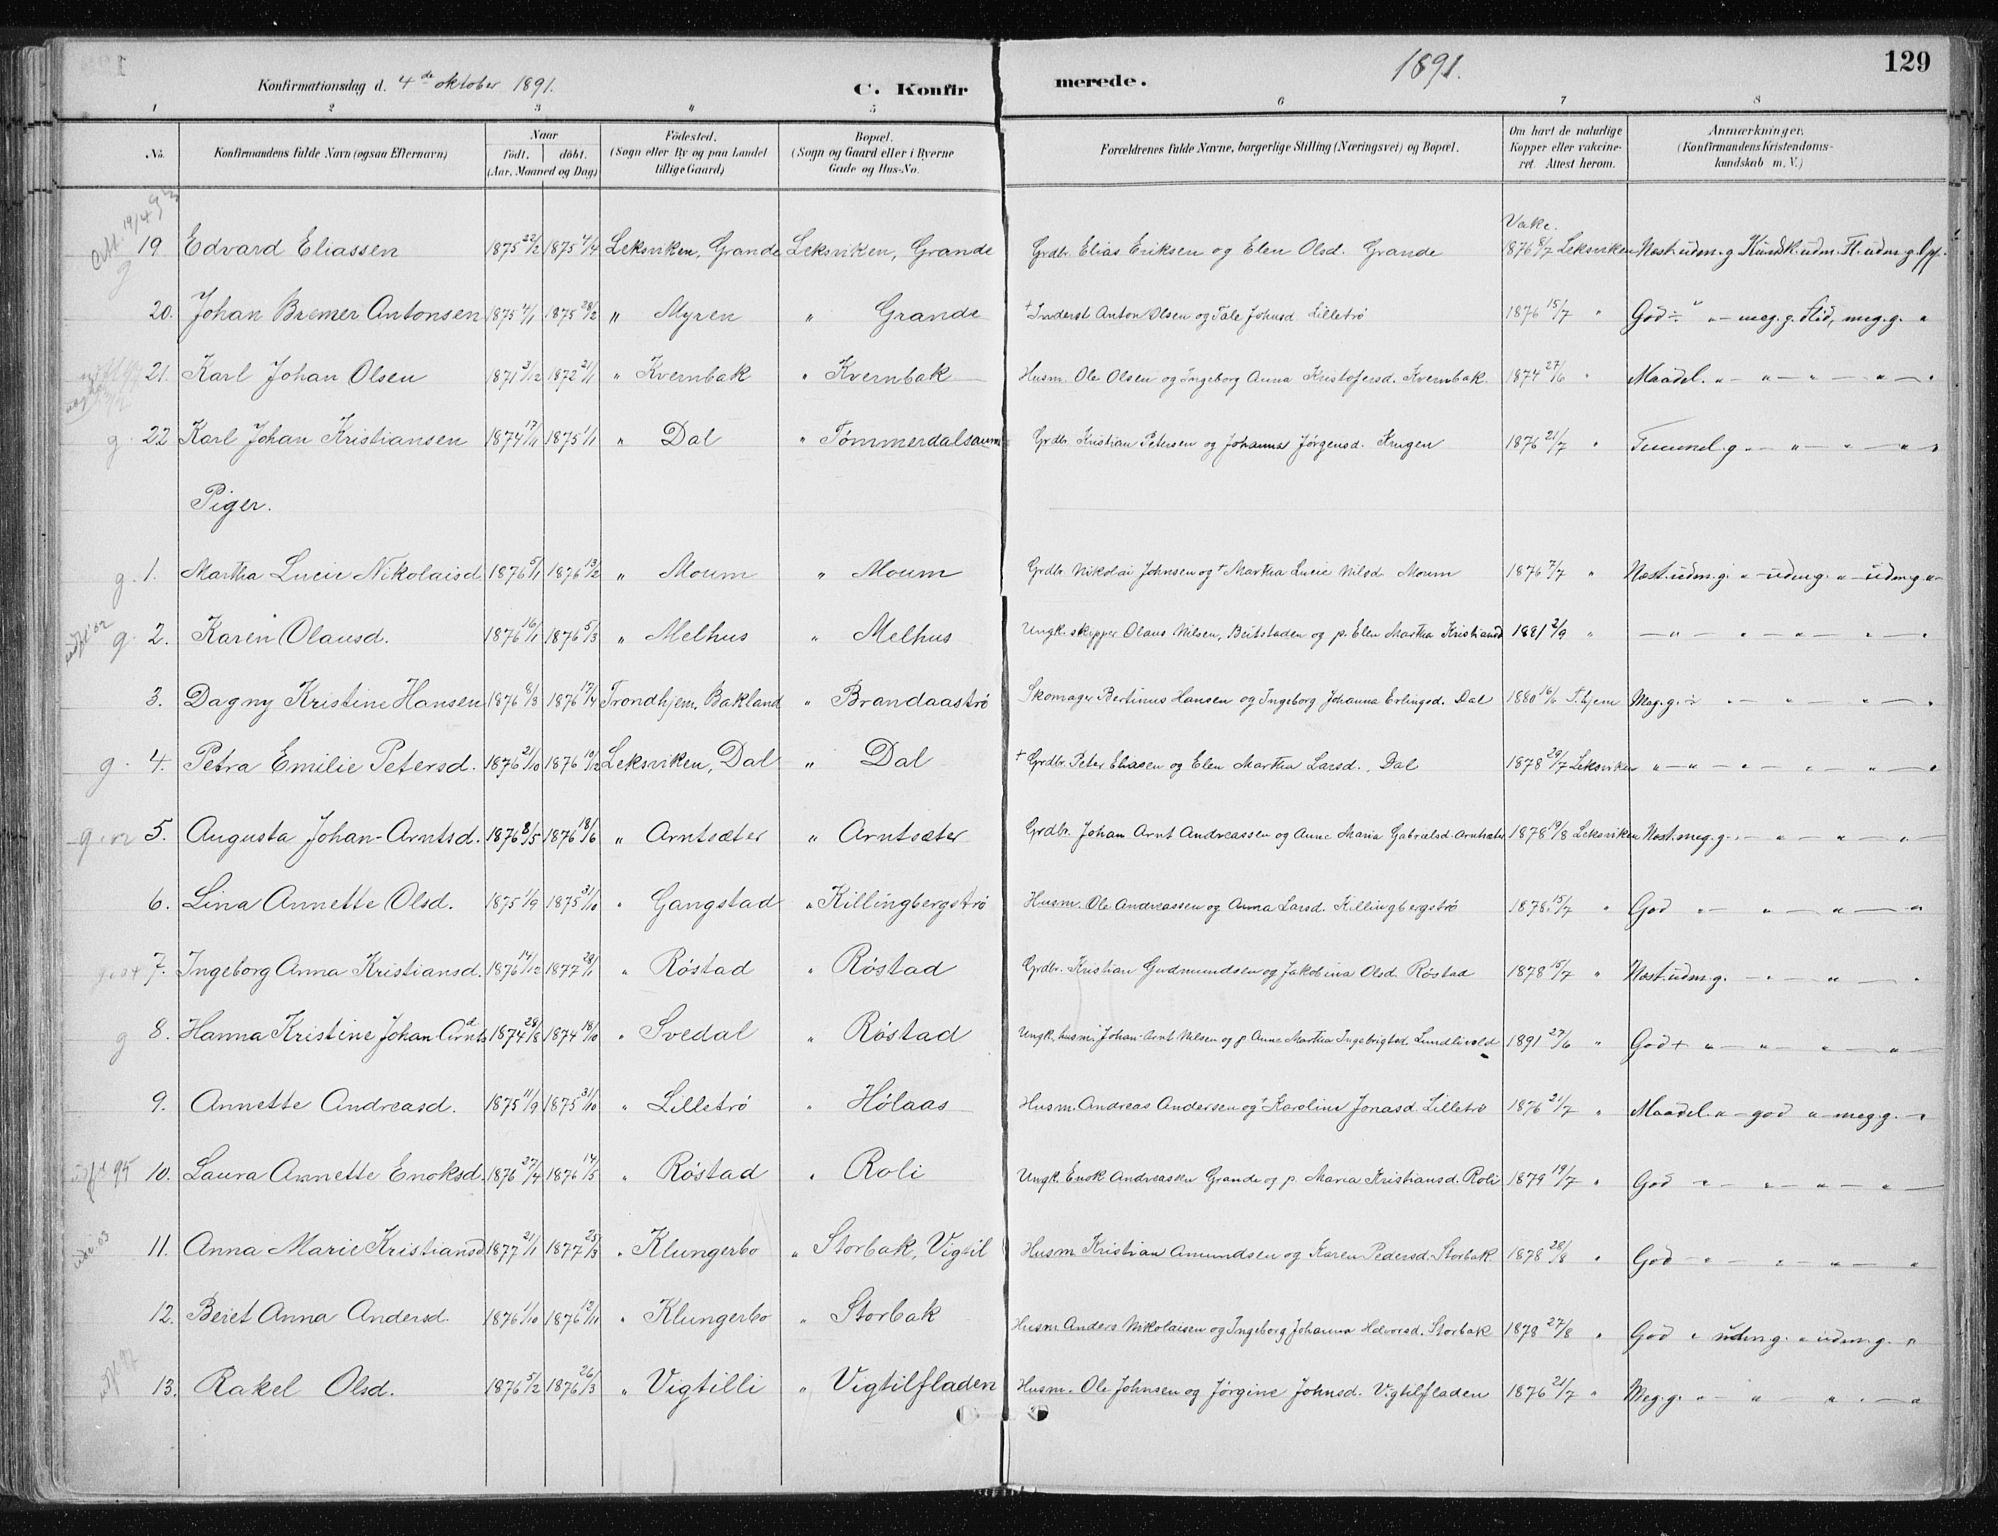 129
1891.
Konfirmationsdag d. 4de oktober 1891. C. Konfirmerede.
1 2 3 4 5 6 7 8
No. Konfirmandens fulde Navn (ogsaa Efternavn) Naar födt. döbt. (Aar, Maaned og Dag) Födested. (Sogn eller By og paa Landet tillige Gaard) Bopæl. (Sogn og Gaard eller i Byerne Gade og Hus-No. Forældrenes fulde Navne, borgerlige Stilling (Næringsvei) og Bopæl. Om havt de naturlige Kopper eller vakcineret. Attest herom. Anmærkninger. (Konfirmandens Kristendomskundskab m. V.)
Vakc.
19 Edvard Eliassen 1875 22/2 1875 4/4 Leksviken, Grande Leksviken, Grande Grdbr. Elias Eriksen og Elen Olsd. Grande 1876 8/7 Leksviken Næst. udm. g Kundsk. udm. Fl. udm. g. Opf.
20. Johan Bremer Antonsen 1875 4/1 1875 28/2 " Myren " Grande + Inderst Anton Olsen og Tale Johnsd Lilletrö 1876 15/7 " God ÷ " " meg. g. Flid, meg. g. "
21. Karl Johan Olsen 1871 3/12 1872 21/1 " Kvernbak " Kvernbak Husm. Ole Olsen og Ingeborg Anna Kristofersd. Kvernbak. 1874 27/6 " Maadel. " " " " "
g. 22 Karl Johan Kristiansen 1874 17/11 1875 1/1 " Dal " Tömmerdalsaunn Grdbr. Kristian Petersen og Johanna Jörgensd. Krugen 1876 21/7 " Temmel. g " " " " "
Piger.
g. 1. Martha Lucie Nikolaisd 1876 5/1 1876 13/2 " Moum " Moum Grdbr. Nikolai Johnsen og + Martha Lucie Nilsd Moum 1876 7/7 " Næst. udm. g. " udm g. " udm. g "
g. 2. Karen Olausd. 1876 16/1 1876 5/3 " Melhus " Melhus Ungk. skipper Olaus Nilsen, Beitstaden og p. Elen Martha Kristiansd 1881 2/9 " " " " " "
3. Dagny Kristine Hansen 1876 8/3 1876 17/4 Trondhjem, Bakland " Brandaaströ Skomager Bertinus Hansen og Ingeborg Johanna Erlingsd. Dal 1880 16/6 T.hjem Meg. g. ÷ " " " " "
g. 4. Petra Emilie Petersd. 1876 21/10 1876 10/12 Leksviken, Dal " Dal + Grdbr. Peter Eliasen og Elen Martha Larsd. Dal 1878 29/7 Leksviken " " " " " "
g. 02 5. Augusta Johan-Arntsd. 1876 8/5 1876 18/6 " Arntsæter " Arntsæter Grdbr. Johan Arnt Andreassen og Anne Maria Gabrielsd. Arntsæter 1878 19/8 Leksviken Næst. meg. g. " " " "
6. Lina Annette Olsd. 1875 1/9 1875 31/10 " Gangstad " Killingbergströ Husm. Ole Andreassen og Anna Larsd. Killingbergströ 1878 15/7 " God " " " "
7. Ingeborg Anna Kristiansd. 1876 14/12 1877 28/1 " Röstad " Röstad Grdbr. Kristian Gudmundsen og Jakobina Olsd. Röstad 1878 15/7 " Næst. udm. g. " " "
g 8. Hanna Kristine Johan-Arntsd 1874 28/8 1874 18/10 " Svedal " Röstad Ungk. husm. Johan-Arnt Nilsen og p. Anne Martha Ingebrigtsd. Lundlivold 1891 27/6 " God + " " " "
9. Annette Andreasd. 1875 11/9 1875 31/10 " Lilletrö " Hölaas Husm. Andreas Andersen og + Karoline Jonasd. Lilletrö 1876 21/7 " Maadel. " god " meg. g. "
95 10. Laura Annette Enoksd. 1876 27/4 1876 14/5 " Röstad " Roli Ungk. Enok Andreassen Grande og p. Maria Kristiansd. Roli 1879 19/7 " God " " " "
11. Anna Marie Kristiansd 1877 21/1 1877 25/3 " Klungerbo " Storbak, Vigtil Husm Kristian Amundsen og Karen Pedersd. Storbak. 1878 28/8 " God " " " "
12. Beret Anna Andersd. 1876 1/10 1876 12/11 " Klungerbo " Storbak Husm. Anders Nikolaisen og Ingeborg Johanna Halvorsd. Storbak 1878 27/8 " God " udm g. " udm. g. "
13. Rakel Olsd. 1876 5/2 1876 26/3 " Vigtilli " Vigtilfladen Husm. Ole Johnsen og Jörgine Johnsd. Vigtilfladen 1876 21/7 " Meg. g. " " " " "